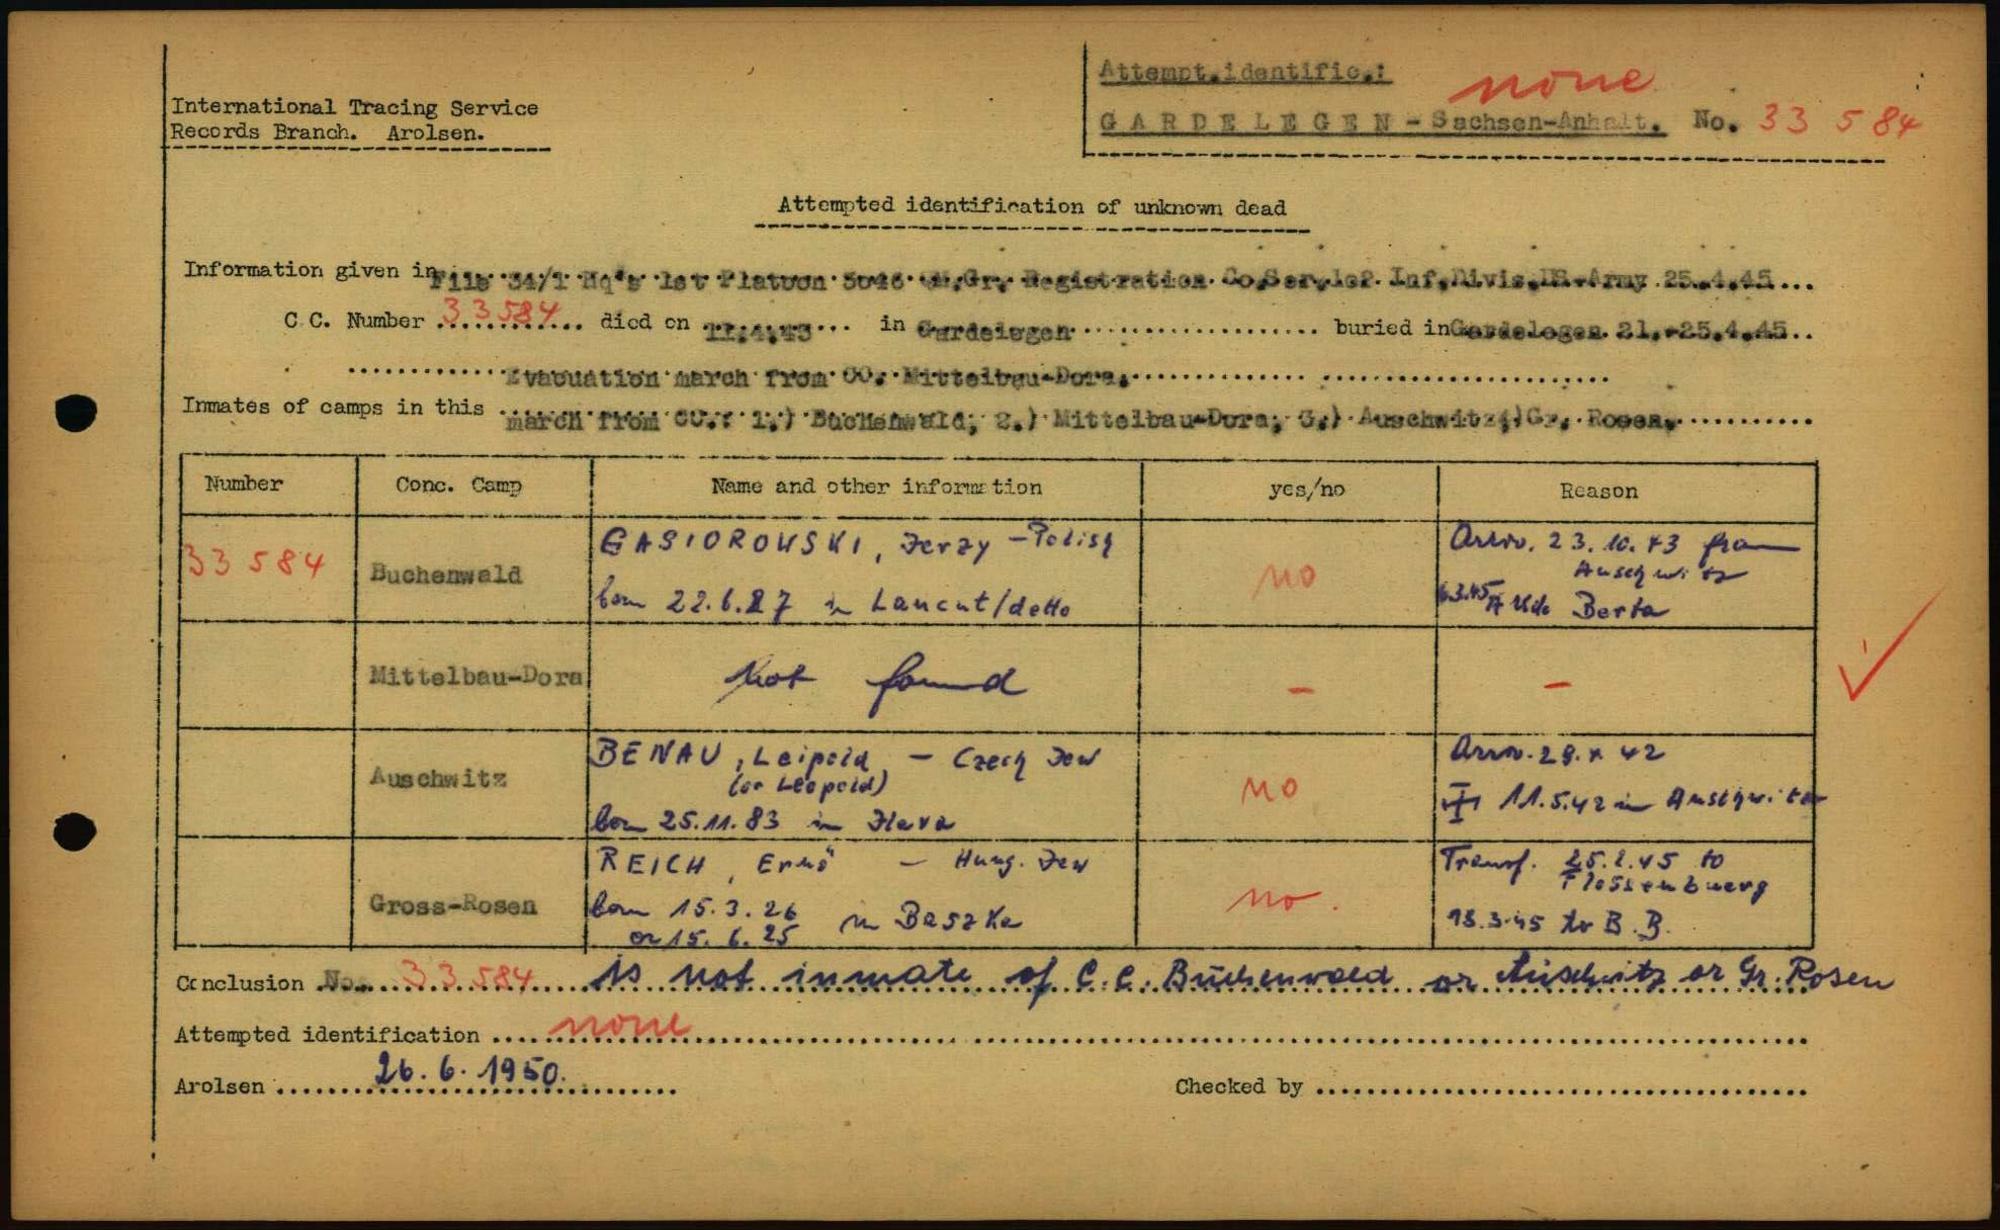 Attempt.identific.:
none
International Tracing Service
Records Branch. Arolsen.
GARDELEGEN - Sachsen-Anhalt. No. 33 584
Attempted identification of unknown dead
Information given in File 34/1 Hq's 1st Platoon 3046 Gr. Registration Co. Inf.Divis.US-Army 25.4.45
C.C. Number 33584 died on in Gardelegen buried in Gardelegen 21.-25.4.45
Evacuation march from CC. Mittelbau-Dora.
Inmates of camps in this march from CC.: 1.) Buchenwald, 2.) Mittelbau-Dora, 3.) Auschwitz 4.) Gr. Rosen.
Number Conc. Camp Name and other information yes/no Reason
33 584 Buchenwald GASIOROWSKI, Jerzy - Polish no Arriv. 23.10.43 from Auschwitz
born 22.6.27 in Lancut/detto Kdo Berta
Mittelbau-Dora Not found - -
Auschwitz BENAU, Leipold - Czech Jew no Arriv. 29. 42
(or Leopold)
born 25.11.83 in 11.5.42 in Auschwitz
Gross-Rosen REICH, Ernö - Hung. Jew no. Transf. 25.2.45 to Flossenbuerg
born 15.3.26 in Baszka 18.3.45 to B.B.
or 15.6.25
Conclusion No. 33 584 is not inmate of C.C. Buchenwald or Auschwitz or Gr. Rosen
Attempted identification none
Arolsen 26.6.1950. Checked by